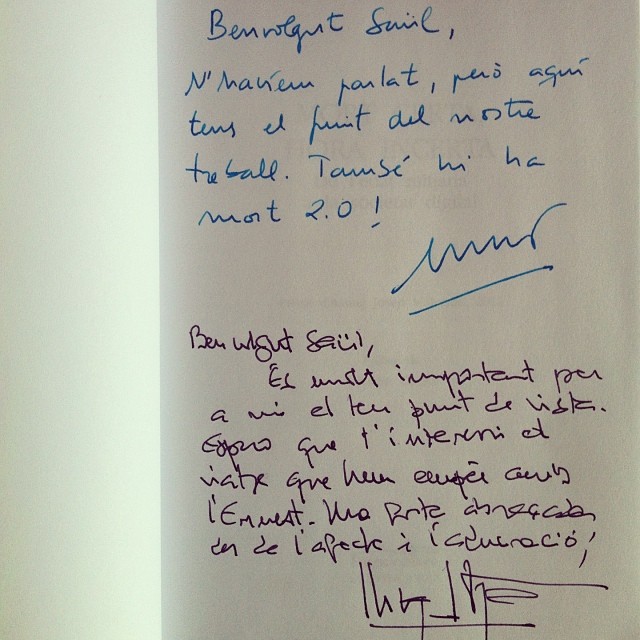 Benvolgut Saül,
N'havíem parlat, però aquí
tens el fruit del nostre
treball. També hi ha
mort 2.0!
Benvolgut Saül,
És molt important per
a mi el teu punt de vista.
Espero que t'interessi el
viatge que hem emprès amb
l'Ernest. Una forta abraçada
des de l'afecte i l'admiració,
HORA INCERTA